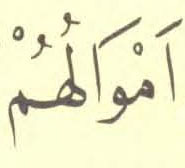 اَمْوَالُهُمْ